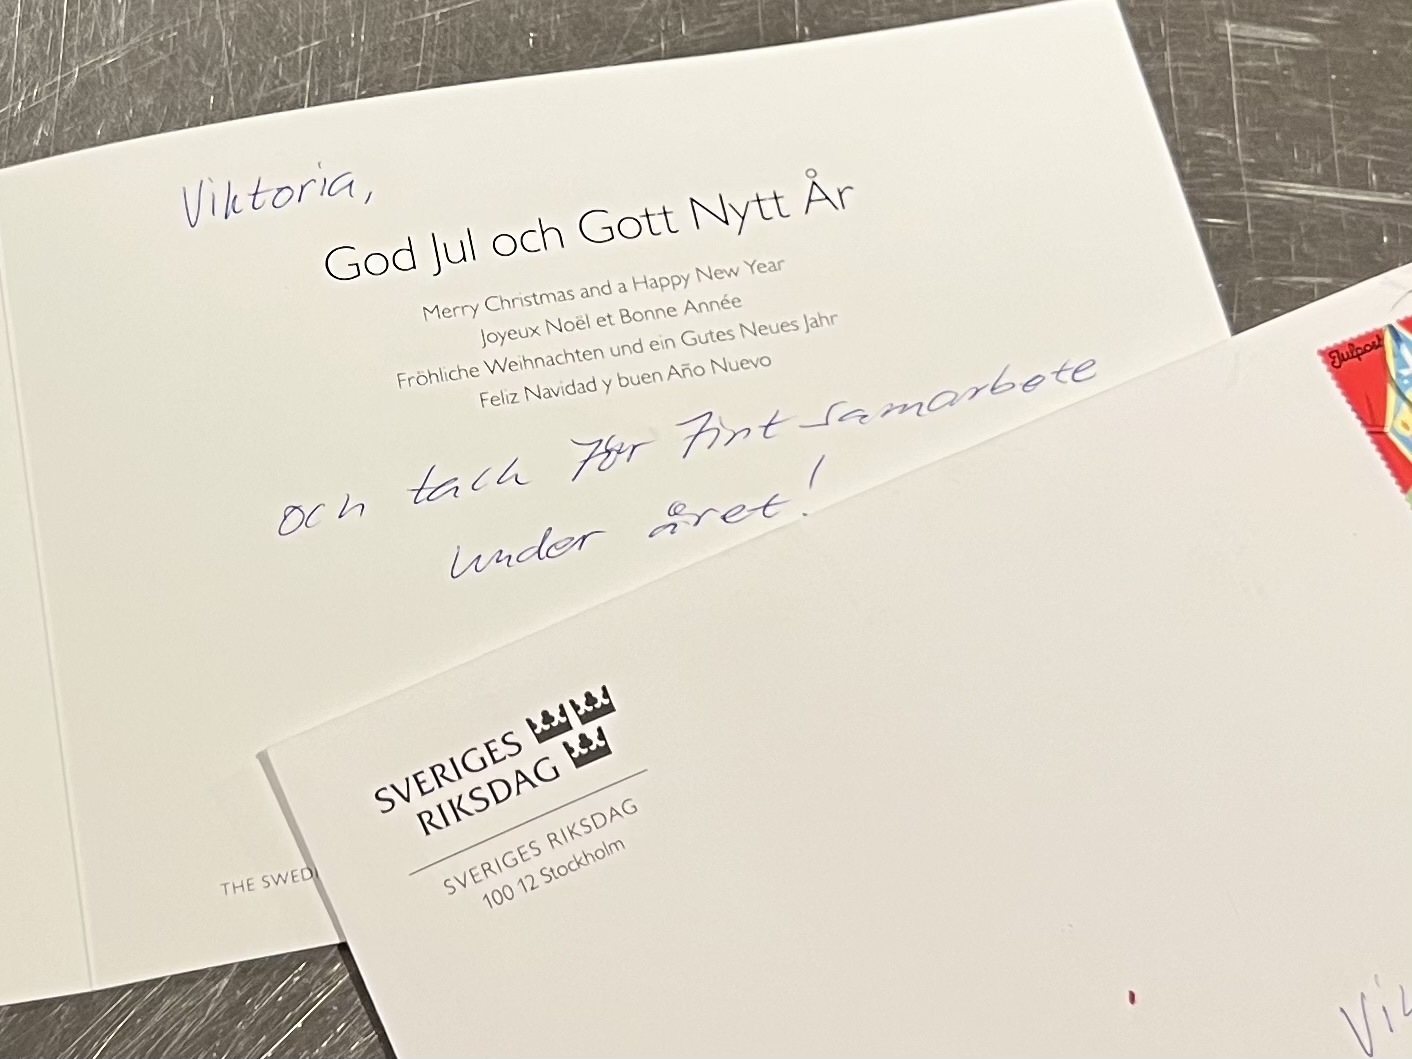 Viktoria,
God Jul och Gott Nytt År
Merry Christmas and a Happy New Year
Joyeux Noël et Bonne Année
Fröhliche Weihnachten und ein Gutes Neues Jahr
Feliz Navidad y buen Año Nuevo
och tack för fint samarbete
under året!
Julpost
SVERIGES
RIKSDAG
SVERIGES RIKSDAG
100 12 Stockholm
THE SWED
Vik